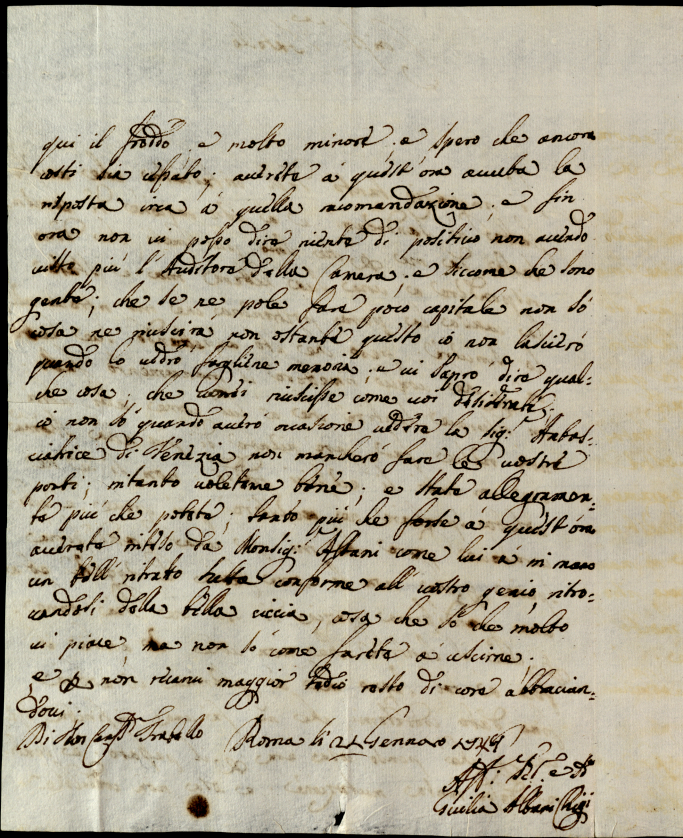 qui il freddo e molto minore. e spero che ancora
costi sia cessato; averete á quest'ora avuba la
risposta circa á quella racomandazione; e fin
ora non vi posso dire niente di positivo non avendo
visto più l'Auditore della Camera. e siccome che sono
gente; che se ne pole fare poco capitale non só
cosa ne riuscirá non ostante questo io non lascieró
quando lo vedró fargliene memoria; e vi sapró dire qual=
che cosa, che riuscisse come voi desiderate;
io non só quando averó occasione vedere la Sig.ra Anbas=
ciatrice di Venezia non mancheró fare le vostre
parti; intanto voleteme bene; e state allegramen=
te più che potete; tanto più che forse á quest'ora
averete inteso da Monsig.r Albani come lui á in mano
un bell ritrato tutta conforme all vostro genio, ritro=
vandosi della bella ciccia, cosa che só che molto
vi piace ma non só come farete á uscirne;
e p non recarvi maggior tedio resto di core abbracian=
dovi.
Di Mon Fratello Roma li 21 Gennaro
Aff:
Giulia Albani Chigi